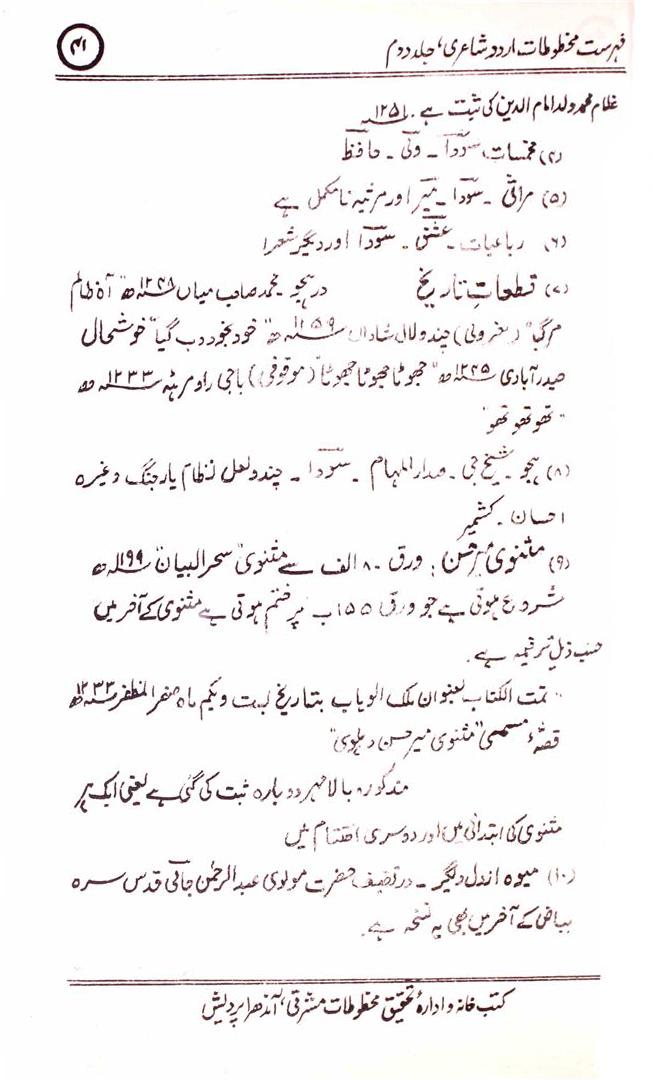 فہرست مخطوطات اردو شاعری، جلد دوم
۴۱
غلام محمد ولد امام الدین کی ثبت ہے۔ ۱۲۵۱
(۴) مخمسات سودا ۔ ولی ۔ حافظ
(۵) مراثی ۔ سودا ۔ میر اور مرثیہ نامکمل ہے
(۶) رباعیات ۔ عشق ۔ سودا اور دیگر شعرا
(۷) قطعات تاریخ در ہجو ۔ محمد صاحب میاں ۱۲۴۸ھ "آہ ظالم
مرگیا" (معزولی) چندو لال شاداں ۱۲۵۹ھ "خود بخود دب گیا" خوشحال
حیدرآبادی ۱۲۴۵ھ "جھوٹا جھوٹا جھوٹا" (موقوفی) باجی راو مرہٹہ ۱۲۳۳ھ
"تھو تھو تھو"
(۸) ہجو ۔ شیخ جی ۔ مدارالمہام ۔ سودا ۔ چندو لعل نظام یار جنگ وغیرہ
احسان ۔ کشمیر
(۹) مثنوی میر حسن: ورق ۸۰ الف سے مثنوی "سحر البیان" ۱۱۹۹ھ
شروع ہوتی ہے جو ورق ۱۵۵ ب پر ختم ہوتی ہے مثنوی کے آخر میں
حسب ذیل ترقیمہ ہے۔
"تمت الکتاب بعنوان ملک الوہاب بتاریخ بست و یکم ماہ صفر المظفر ۱۲۳۲ھ
قصۂ مسمی "مثنوی میر حسن دہلوی"
مذکورہ بالا مہر دوبارہ ثبت کی گئی ہے یعنی ایک مہر
مثنوی کی ابتدائی میں اور دوسری اختتام میں
(۱۰) میوہ دیگر ۔ در تصنیف حضرت مولوی عبدالرحمٰن جامی قدس سرہ
بیاض کے آخر میں بھی یہ نسخہ ہے۔
کتب خانہ و ادارۂ تحقیق مخطوطات مشرقی، آندھرا پردیش